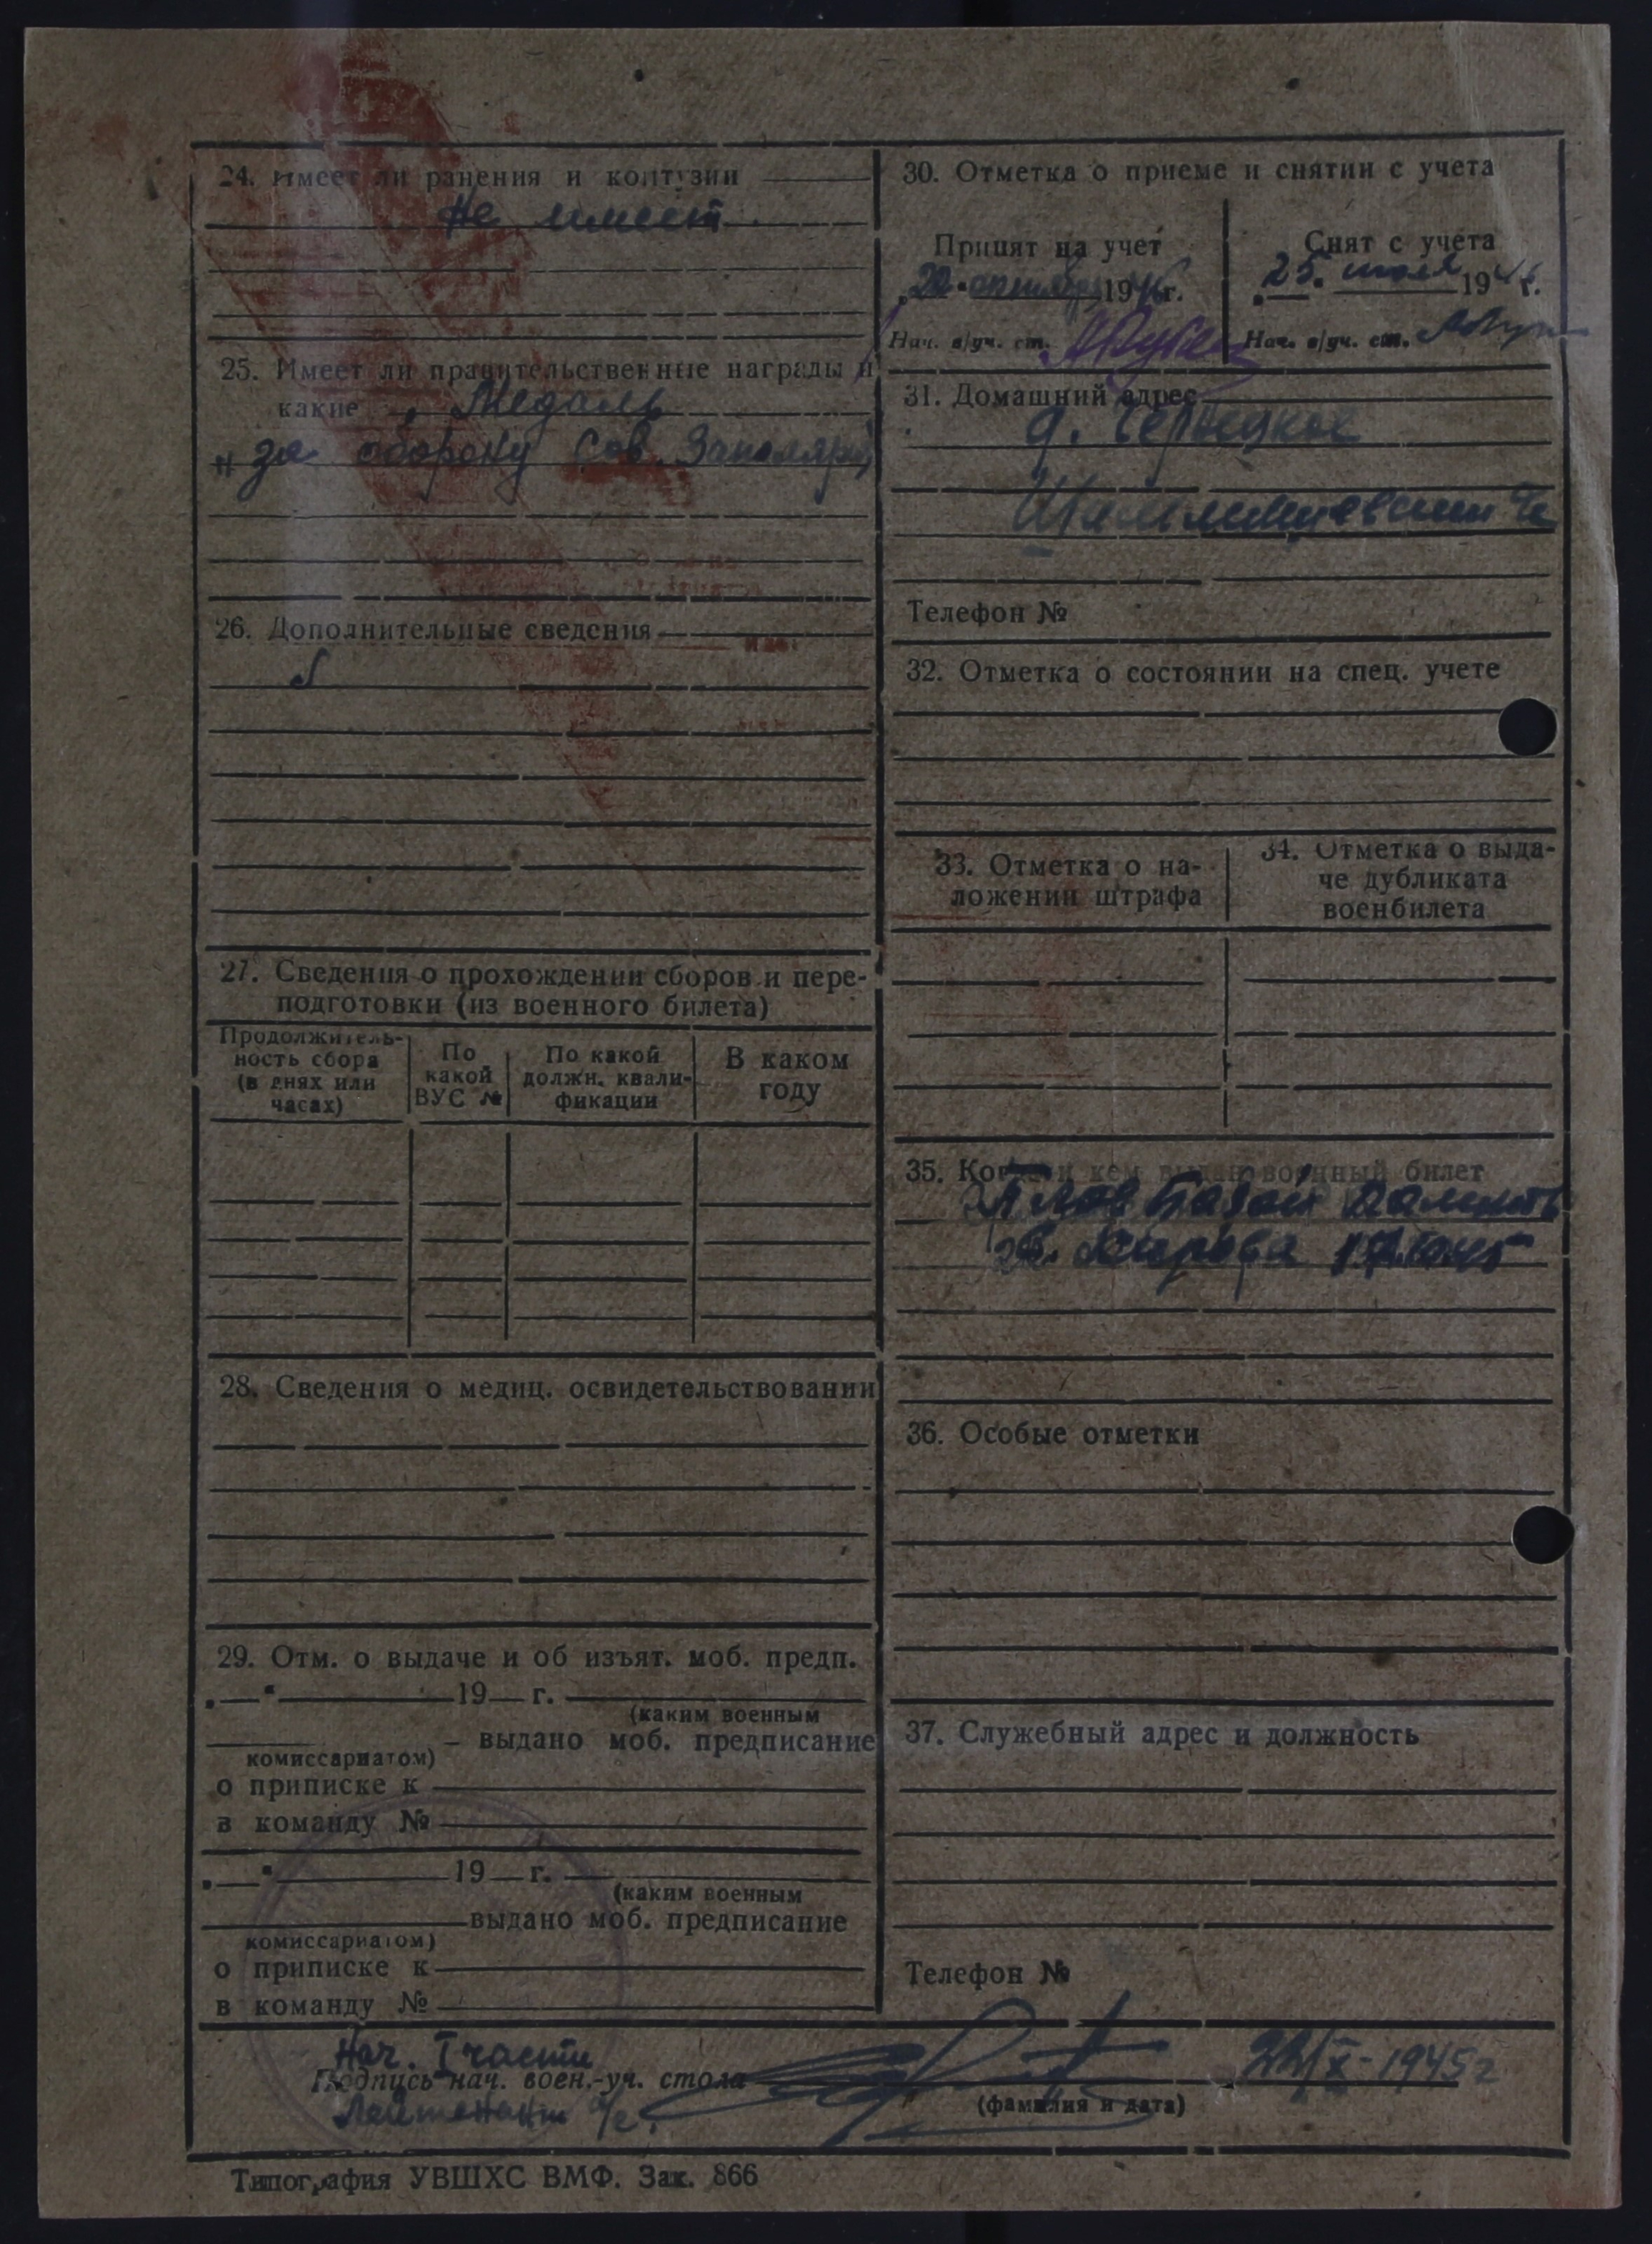 24. Имеет ли ранения и контузии
не имеет.
25. Имеет ли правительственные награды и
какие Медаль
"за оборону Сов. Заполярь"
26. Дополнительные сведения
27. Сведения о прохождении сборов и пере-
подготовки (из военного билета)
Продолжитель-
ность сбора
(в днях или
часах)
По
какой
ВУС №
По какой
должн. квали-
фикации
В каком
году
28. Сведения о медиц. освидетельствовании
29. Отм. о выдаче и об изъят. моб. предп.
"—" 19— г.
(каким военным
— выдано моб. предписание
комиссариатом)
о приписке к
в команду №
"—" 19— г.
(каким военным
выдано моб. предписание
комиссариатом)
о приписке к
в команду №
30. Отметка о приеме и снятии с учета
Принят на учет
1946 г.
Нач. в/уч. ст.
Снят с учета
25. июля 194 г.
Нач. в/уч. ст.
31. Домашний адрес
д.
Телефон №
32. Отметка о состоянии на спец. учете
33. Отметка о на-
ложении штрафа
34. Отметка о выда-
че дубликата
военбилета
35. Когда и кем выдан военный билет
36. Особые отметки
37. Служебный адрес и должность
Телефон №
Нач. I части
Подпись нач. воен.-уч. стола
22/X-1945г
Лейтенант а/с.
(фамилия и дата)
Типография УВШХС ВМФ. Зак. 866